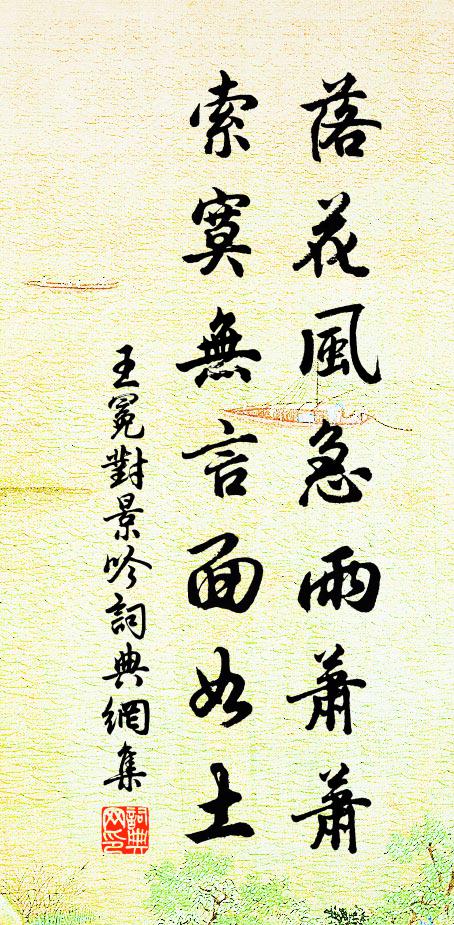 落花風急雨蕭蕭
索寞無言面如土
王冕對景吟詞典網集
詞典
网印